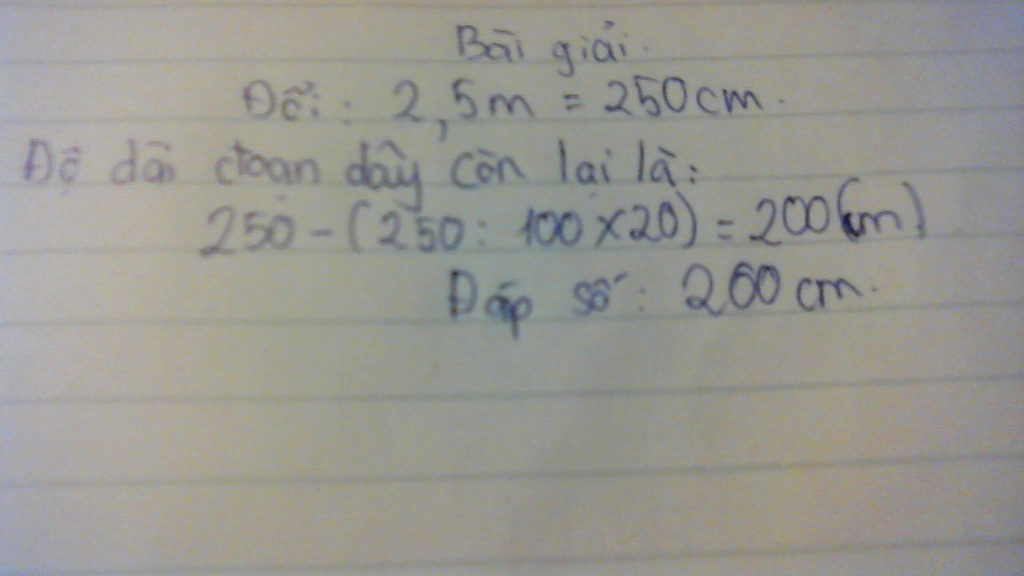 Bài giải.
Đổi: 2,5m = 250cm.
Độ dài đoạn dây còn lại là:
250 - (250 : 100 x 20) = 200(cm)
Đáp số: 200 cm.